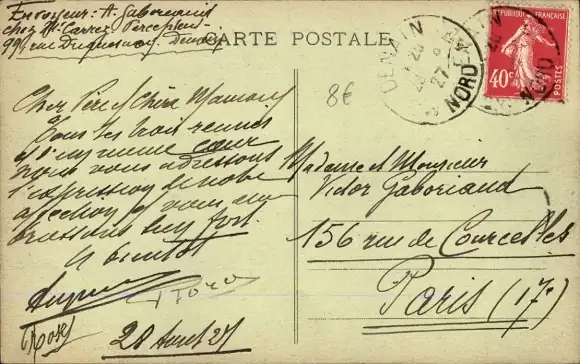 Envoyeur: A. Gaboriaud
chez Mr. Carrez Percepteur
99 rue Duquesnoy. Denain
CARTE POSTALE
DENAIN
NORD
27
RÉPUBLIQUE FRANÇAISE
40c
POSTES
NORD
8€
Cher Père et chère Maman
Tous les trois réunis
d'un même cœur
nous vous adressons
l'expression de notre
affection et vous em
brassons bien fort.
A bientôt
28 27
Madame et Monsieur
Victor Gaboriaud
156 rue de Courcelles
Paris (17e)